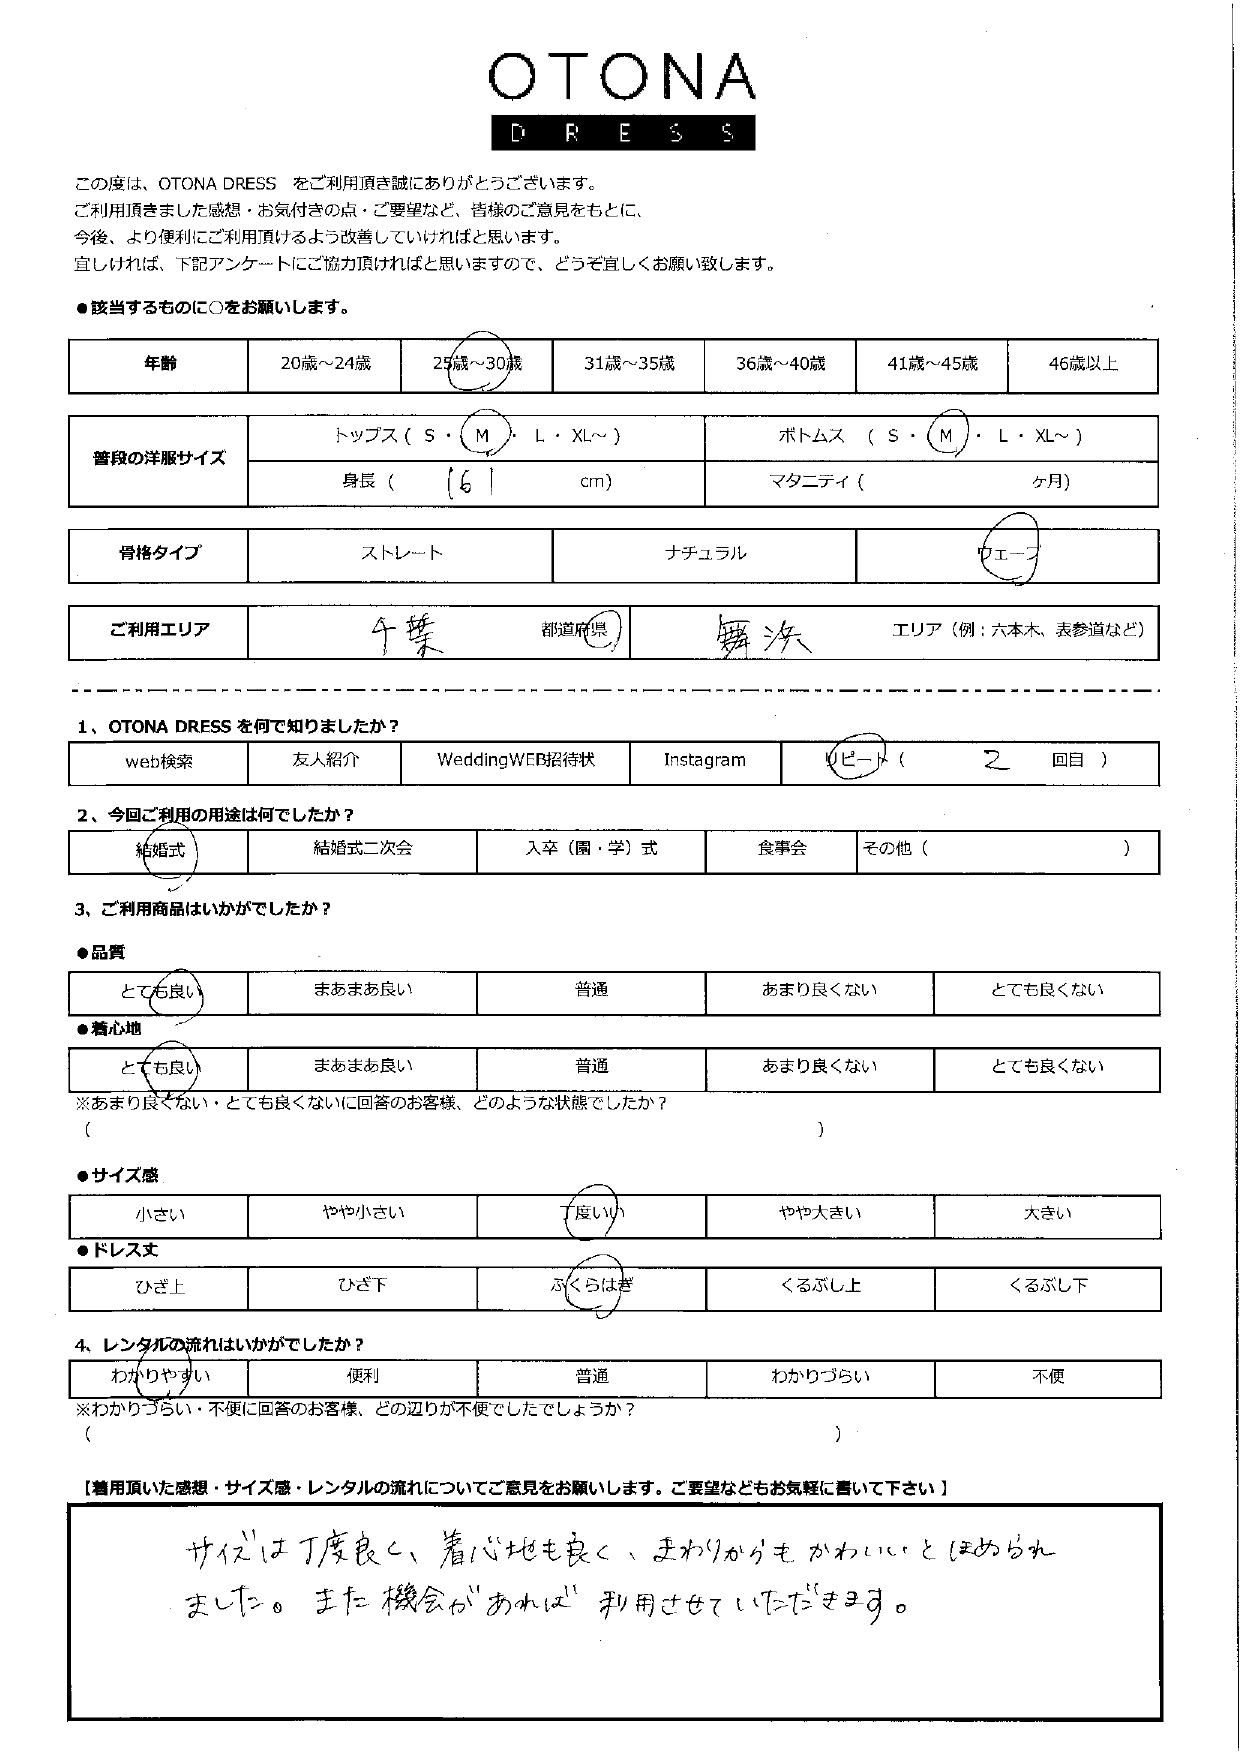 OTONA
DRESS
この度は、OTONA DRESS をご利用頂き誠にありがとうございます。
ご利用頂きました感想・お気付きの点・ご要望など、皆様のご意見をもとに、
今後、より便利にご利用頂けるよう改善していければと思います。
宜しければ、下記アンケートにご協力頂ければと思いますので、どうぞ宜しくお願い致します。
●該当するものに○をお願いします。
年齢 20歳～24歳 25歳～30歳 31歳～35歳 36歳～40歳 41歳～45歳 46歳以上
普段の洋服サイズ トップス ( S ・ M ・ L ・ XL～ ) ボトムス ( S ・ M ・ L ・ XL～ )
身長 ( 161 cm) マタニティ ( ヶ月)
骨格タイプ ストレート ナチュラル ウェーブ
ご利用エリア 千葉 都道府県 舞浜 エリア（例：六本木、表参道など）
1、OTONA DRESS を何で知りましたか？
web検索 友人紹介 WeddingWEB招待状 Instagram リピート ( 2 回目 )
2、今回ご利用の用途は何でしたか？
結婚式 結婚式二次会 入卒（園・学）式 食事会 その他 ( )
3、ご利用商品はいかがでしたか？
●品質
とても良い まあまあ良い 普通 あまり良くない とても良くない
●着心地
とても良い まあまあ良い 普通 あまり良くない とても良くない
※あまり良くない・とても良くないに回答のお客様、どのような状態でしたか？
( )
●サイズ感
小さい やや小さい 丁度いい やや大きい 大きい
●ドレス丈
ひざ上 ひざ下 ふくらはぎ くるぶし上 くるぶし下
4、レンタルの流れはいかがでしたか？
わかりやすい 便利 普通 わかりづらい 不便
※わかりづらい・不便に回答のお客様、どの辺りが不便でしたでしょうか？
( )
【着用頂いた感想・サイズ感・レンタルの流れについてご意見をお願いします。ご要望などもお気軽に書いて下さい】
サイズは丁度良く、着心地も良く、まわりからもかわいいとほめられ
ました。また機会があれば利用させていただきます。